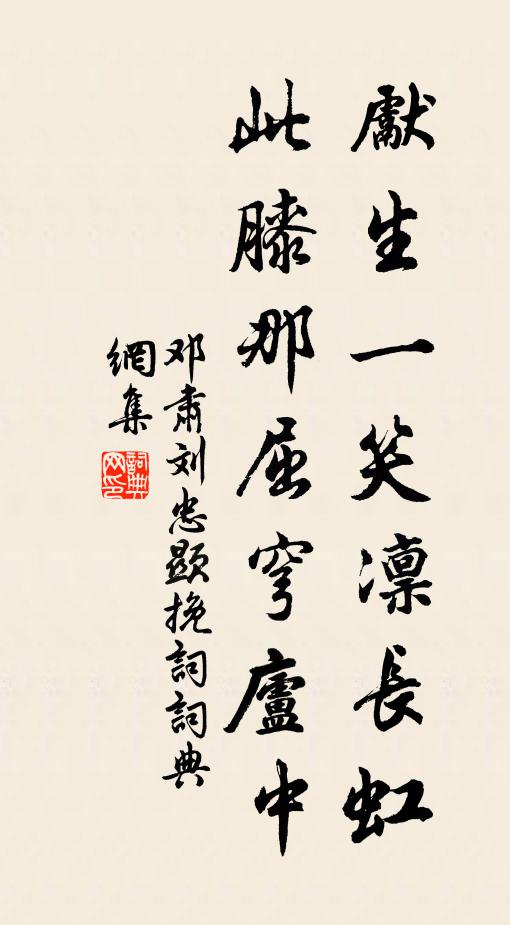 獻生一笑凜長虹
此膝那屈穹廬中
邓肅刘忠顕挽詞詞典
網集
詞典
网印